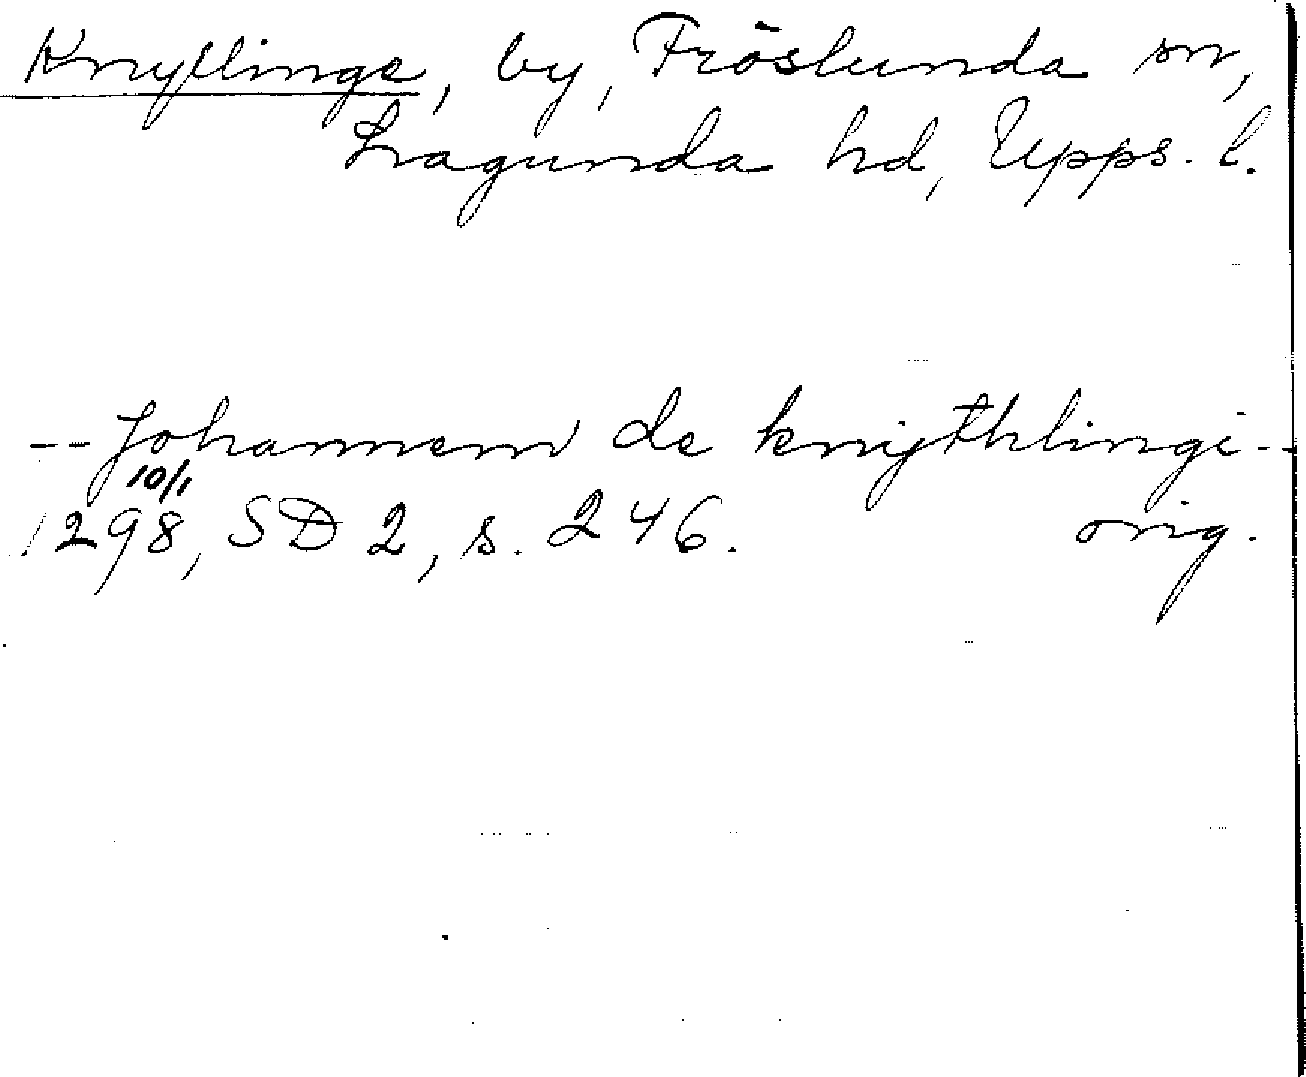 Knyllinge, by, Fröslunda sn,
Lagunda hd, Upps. l.
-- Johannem de knythlinge --
10/1
1298, SD 2, s. 246. orig.